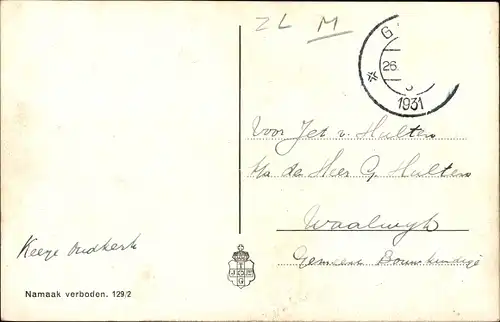 ZL M
G
26.
1931
Voor Jet v. Hulten
p/a de Heer G. Hulten
Waalwijk
Gemeente Bouwkundige
Keeye Oudkerk
Namaak verboden. 129/2